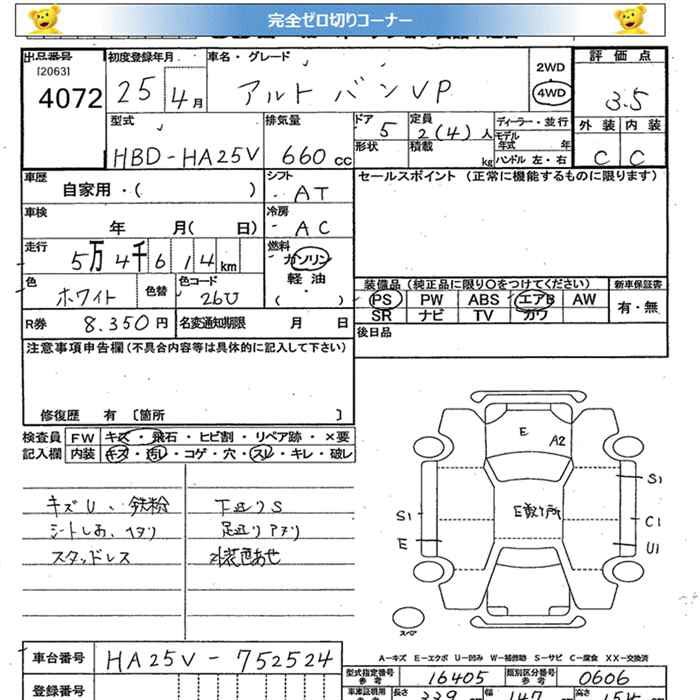 完全ゼロ切りコーナー
出品番号 初度登録年月 車名・グレード 2WD 評価点
[2063]
4072 25 4月 アルト バン VP 4WD 3.5
型式 排気量 ドア 5 定員 2(4)人 ディーラー・並行 外装 内装
モデル 年式 年
HBD-HA25V 660cc 形状 積載 kg ハンドル 左・右 C C
車歴 シフト セールスポイント (正常に機能するものに限ります)
自家用・( ) AT
車検 冷房
年 月( 日) AC
走行 燃料
5万4千614km ガソリン
軽油
色 色替 色コード ( ・ ) 装備品 (純正品に限り○をつけてください) 新車保証書
ホワイト 26U PS PW ABS エアB AW 有・無
R券 8.350円 名変通知期限 月 日 SR ナビ TV カワ
後日品
注意事項申告欄(不具合内容等は具体的に記入して下さい)
修復歴 有 〔箇所 〕
検査員 FW キズ・飛石・ヒビ割・リペア跡・×要
記入欄 内装 キズ・汚レ・コゲ・穴・スレ・キレ・破レ
キズU、鉄粉 下廻りS
シートしみ、ヘタリ 足廻りアタリ
スタッドレス 外装色あせ
E A2
E数ヶ所
S1 S1
C1
E U1
スペア
A-キズ E-エクボ U-凹み W-補修跡 S-サビ C-腐食 XX-交換済
車台番号 HA25V-752524
型式指定番号 参考 16405 類別区分番号 参考 0606
登録番号
車庫証明用 参考 長さ 339 幅 147 高さ